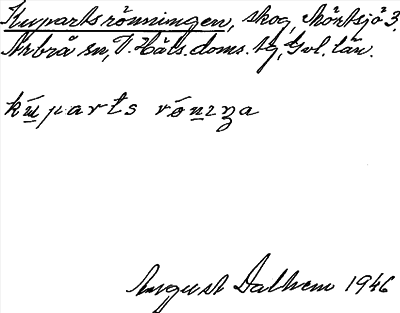 Kupartsrönningen, skog, Mörtsjö 3.
Arbrå sn, V. Häls. doms. tg, Gvl. län.
kuparts rönıŋa
August Dalhem 1946